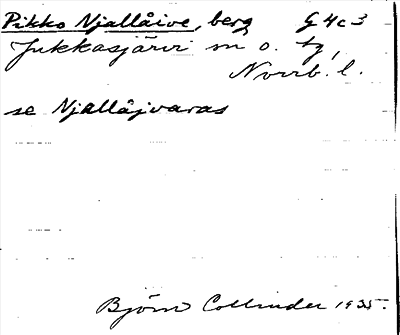 Pikko Njallåive, berg G4c3
Jukkasjärvi sn o. tg,
Norrb. l.
se Njallåjvaras
Björn Collinder 1935.